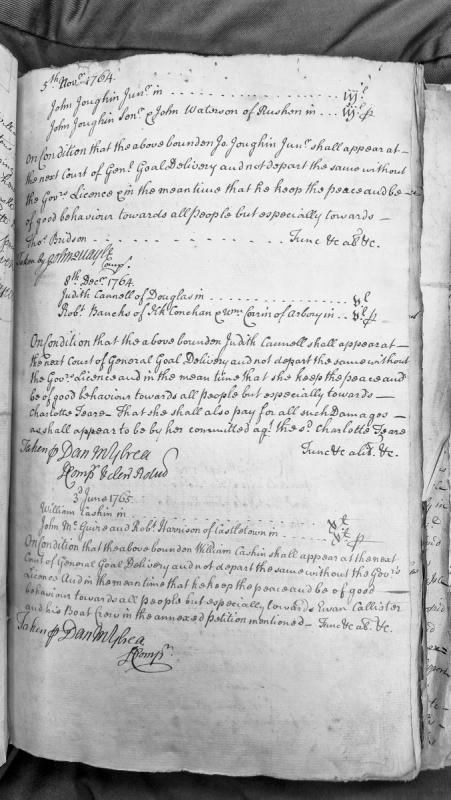 5th Novr 1764.
John Joughin Junr in . . . . . . . . . . . . . . iijl
John Joughin Senr & John Waterson of Rushen in . . . iijl p
On Condition that the above bounden Jo. Joughin Junr shall appear at
the next Court of Genl Goal Delivery and not depart the same without
the Govrs Licence & in the mean time that he keep the peace and be
of good behaviour towards all People but especially towards
Thos Bridson . . . . . . . . . . . . Tunc &c ab &c.
Taken by John Quayle
Compr.
8th Decr 1764.
Judith Cannell of Douglas in . . . . . . . . . . . . vl
Robt Banks of Kk Conchan & Wm Corrin of Arbory in . . vl p
On Condition that the above bounden Judith Cannell shall appear at
the next Court of General Goal Delivery and not depart the same without
the Govrs Licence and in the mean time that she keep the peace and
be of good behaviour towards all People but especially towards
Charlotte Teare. That she shall also pay for all such Damages
as shall appear to be by her committed agt the sd Charlotte Teare
Tunc &c alit. &c.
Taken p Dan Mylrea
3d June 1765.
William Cashin in . . . . . . . . . . . . . .
John Mc Guire and Robt Harrison of Castletown in . . .
On Condition that the above bounden William Cashin shall appear at the next
Court of General Goal Delivery and not depart the same without the Govrs
Licence And in the mean time that he keep the peace and be of good
behaviour towards all People but especially towards Ewan Callister
and his Boat Crew in the annexed Petition mentioned – Tunc &c ab. &c.
Taken p Dan Mylrea
Compr.